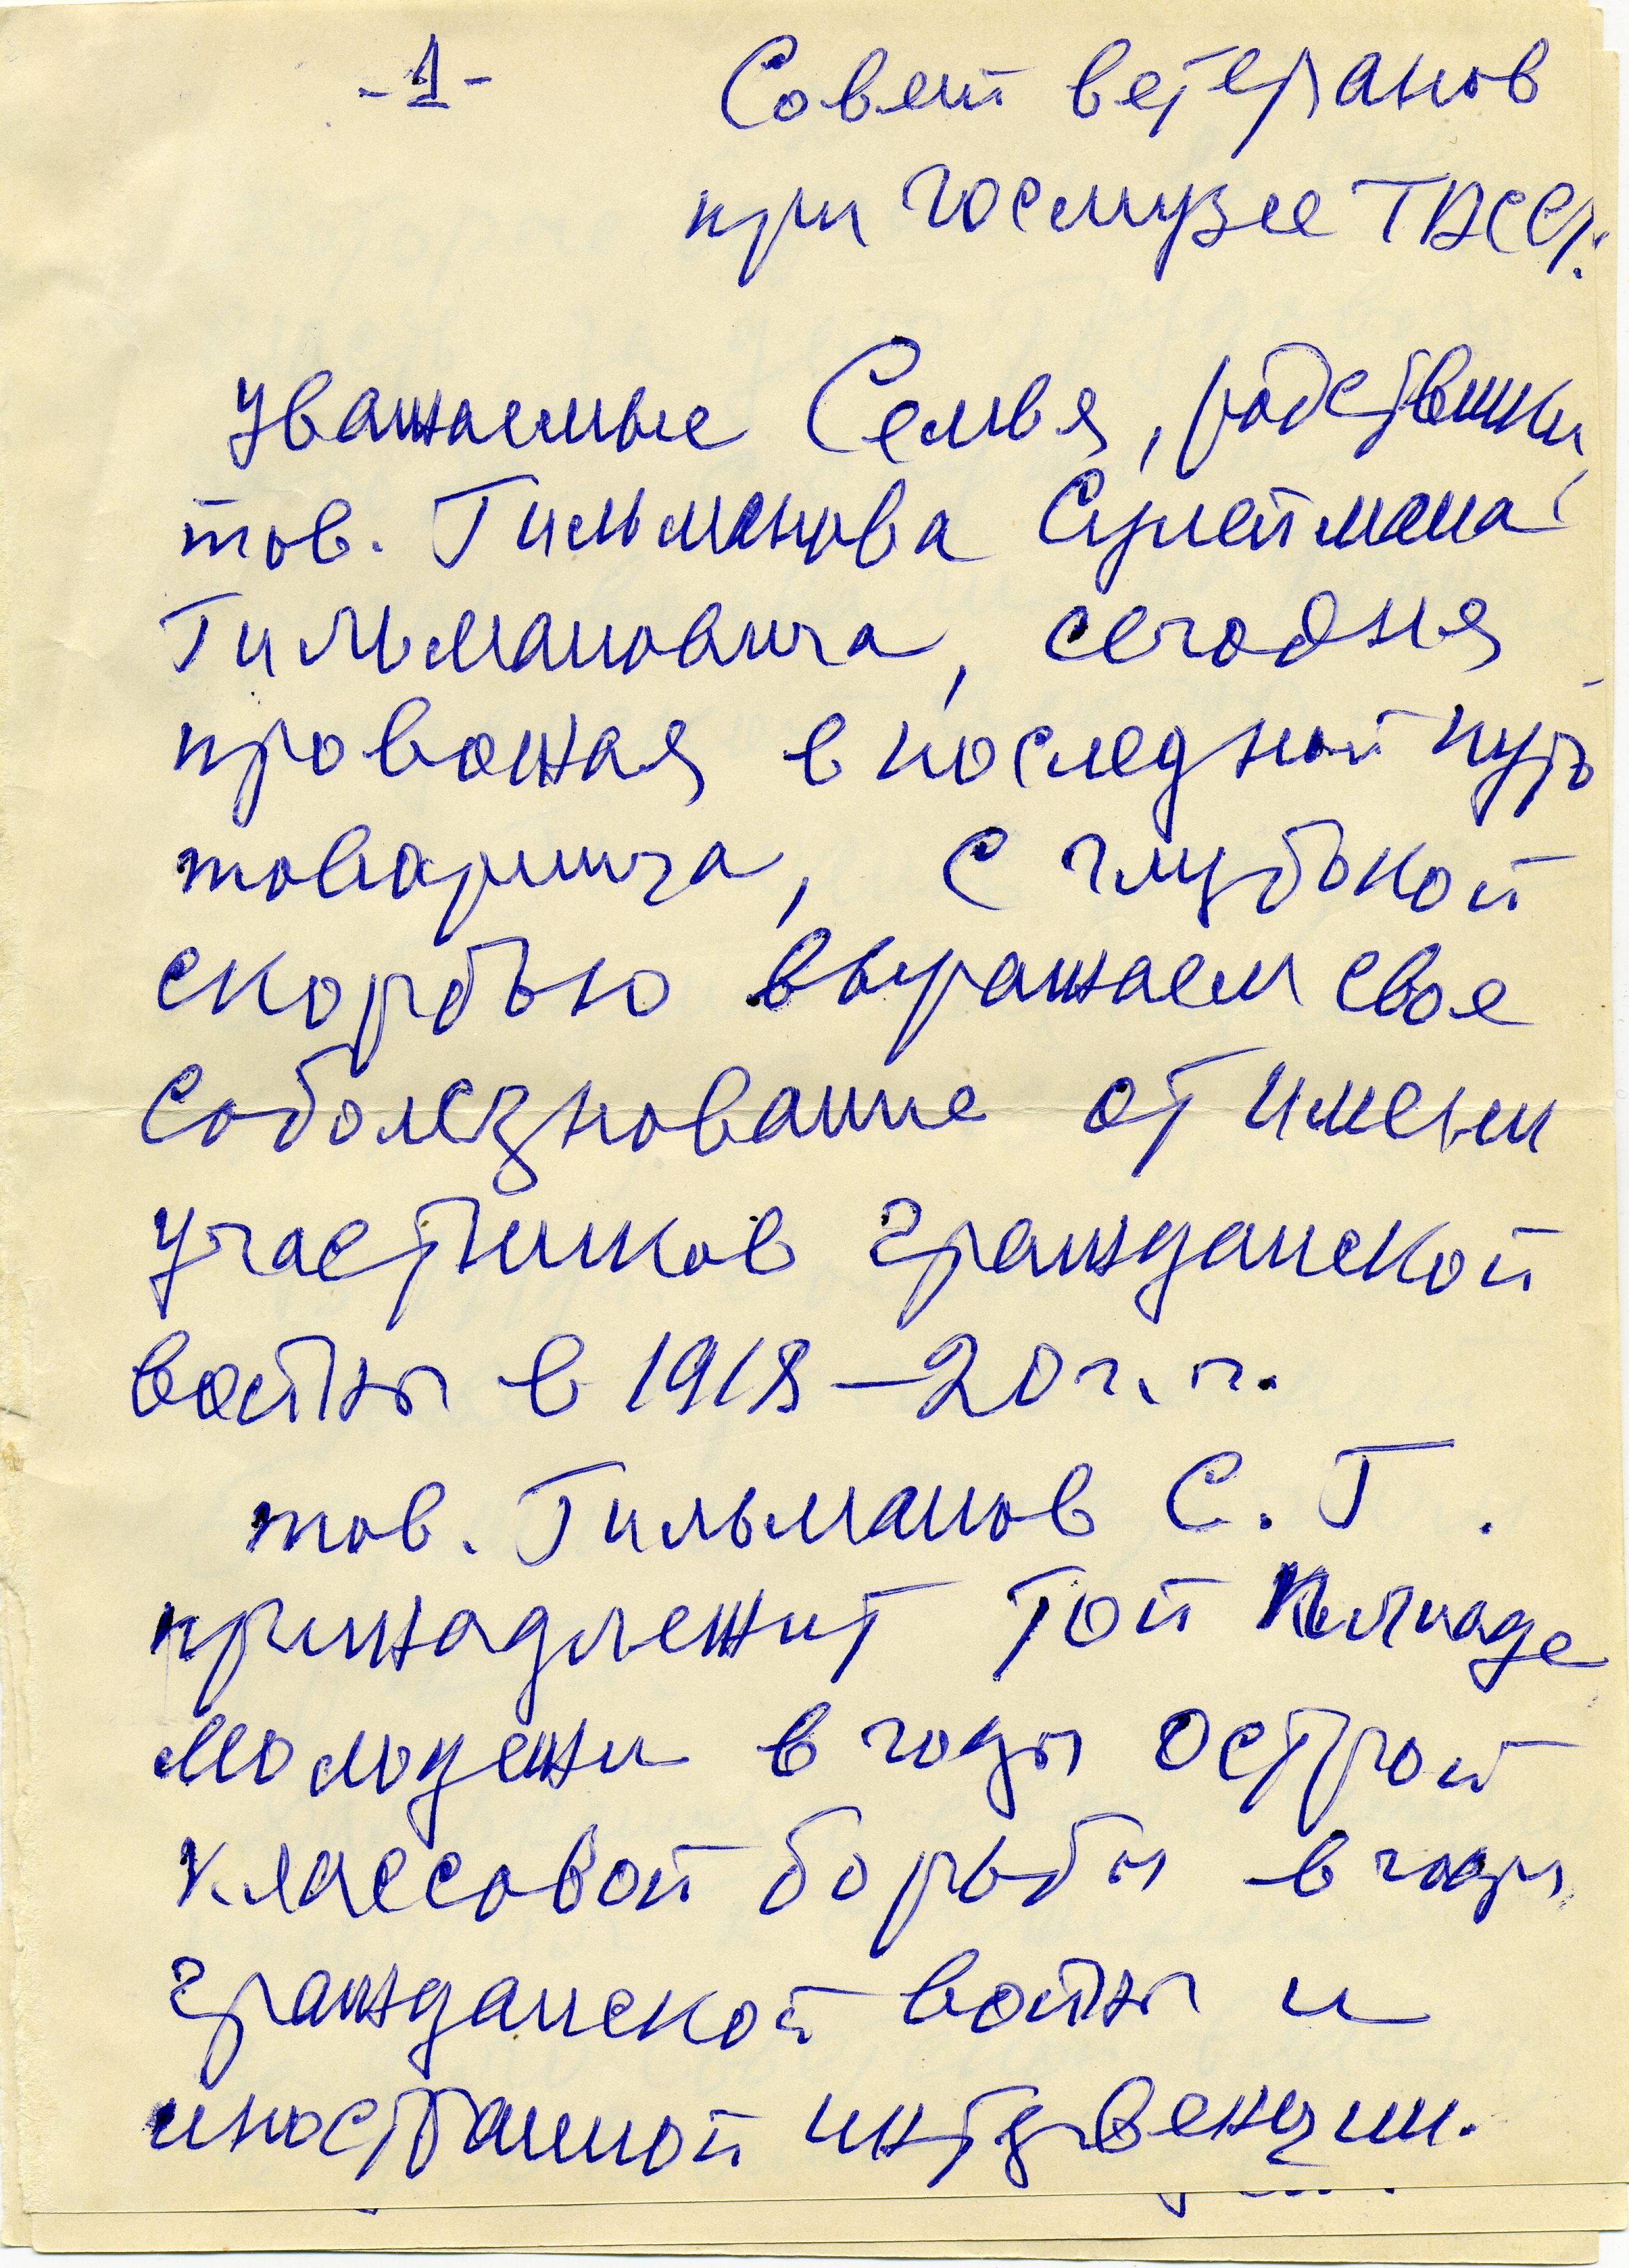 -1-
Совет ветеранов
при Госмузее ТАССР.
Уважаемые Семья, родствники
тов. Гильманова Сулеймана
Гильмановича, сегодня
провожая в последной путь
товарища, с глубокой
скорбью выражаем свое
соболезнование от имени
участников гражданской
войны в 1918-20 г.г.
тов. Гильманов С. Г.
принадлежит той плеяде
молодежи в годы острой
классовой борьбы в годы
гражданской войны и
иностранной интервенции.